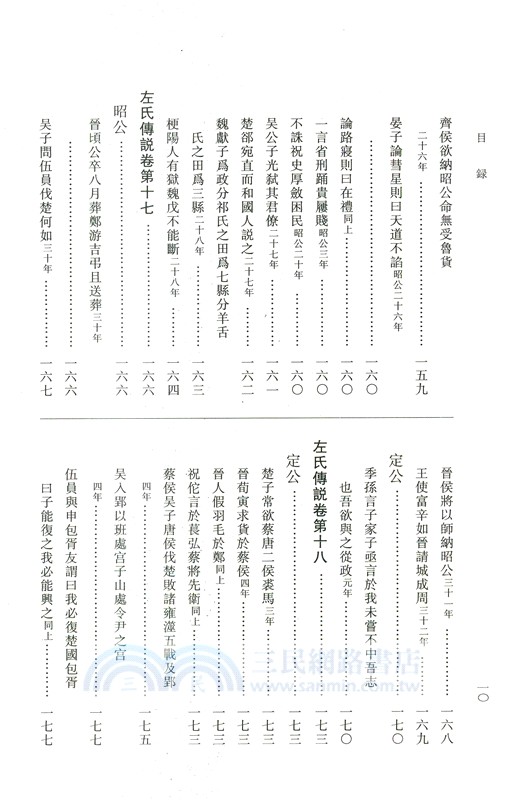 目 録
齊侯欲納昭公命無受魯貨
二十六年……一五九
晏子論彗星則曰天道不諂昭公二十六年
……一六〇
論路寢則曰在禮同上……一六〇
一言省刑踊貴屨賤昭公三年……一六〇
不誅祝史厚斂困民昭公二十年……一六〇
吳公子光弒其君僚二十七年……一六一
楚郤宛直而和國人説之二十七年……一六二
魏獻子爲政分祁氏之田爲七縣分羊舌
氏之田爲三縣二十八年……一六三
梗陽人有獄魏戊不能斷二十八年……一六四
左氏傳説卷第十七……一六六
昭公……一六六
晉頃公卒八月葬鄭游吉弔且送葬三十年
……一六六
吳子問伍員伐楚何如三十年……一六七
晉侯將以師納昭公三十一年……一六八
王使富辛如晉請城成周三十二年……一六九
定公……一七〇
季孫言子家子亟言於我未嘗不中吾志
也吾欲與之從政元年……一七〇
左氏傳説卷第十八……一七三
定公……一七三
楚子常欲蔡唐二侯裘馬三年……一七三
晉荀寅求貨於蔡侯四年……一七三
晉人假羽毛於鄭同上……一七三
祝佗言於萇弘蔡將先衛同上……一七三
蔡侯吳子唐侯伐楚敗諸雍澨五戰及郢
四年……一七五
吳入郢以班處宮子山處令尹之宮
四年……一七七
伍員與申包胥友謂曰我必復楚國包胥
曰子能復之我必能興之同上……一七七
一〇
三民網路書店
www.sanmin.com.tw
三民